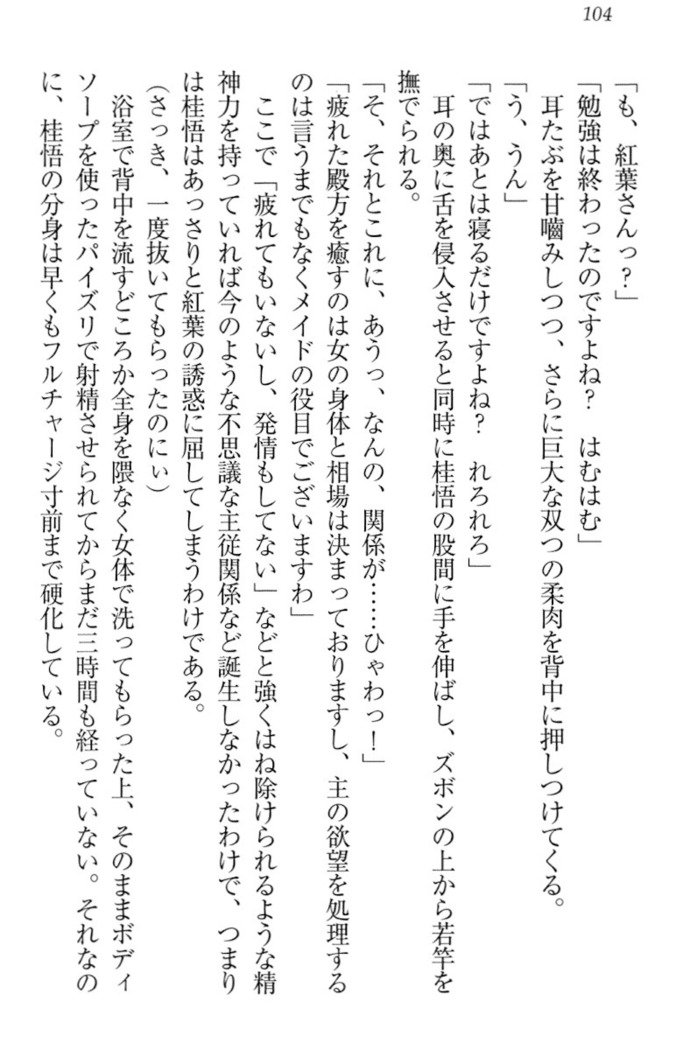 104
「も、紅葉さんっ?」
「勉強は終わったのですよね?　はむはむ」
耳たぶを甘嚙みしつつ、さらに巨大な双つの柔肉を背中に押しつけてくる。
「う、うん」
「ではあとは寝るだけですよね?　れろれろ」
耳の奥に舌を侵入させると同時に桂悟の股間に手を伸ばし、ズボンの上から若竿を
撫でられる。
「そ、それとこれに、あうっ、なんの、関係が……ひゃわっ!」
「疲れた殿方を癒すのは女の身体と相場は決まっておりますし、主の欲望を処理する
のは言うまでもなくメイドの役目でございますわ」
ここで「疲れてもいないし、発情もしてない」などと強くはね除けられるような精
神力を持っていれば今のような不思議な主従関係など誕生しなかったわけで、つまり
は桂悟はあっさりと紅葉の誘惑に屈してしまうわけである。
(さっき、一度抜いてもらったのにぃ)
浴室で背中を流すどころか全身を隈なく女体で洗ってもらった上、そのままボディ
ソープを使ったパイズリで射精させられてからまだ三時間も経っていない。それなの
に、桂悟の分身は早くもフルチャージ寸前まで硬化している。